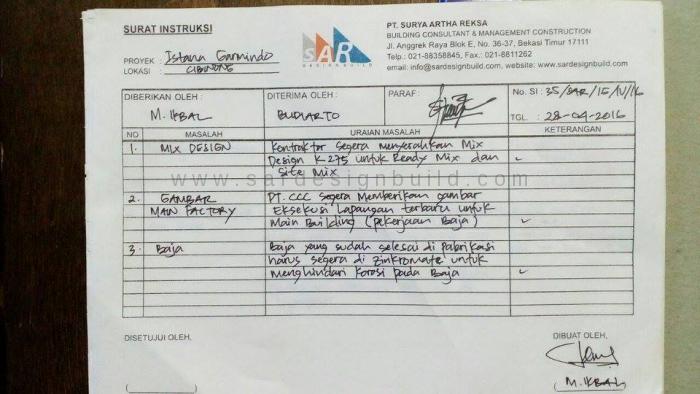 SURAT INSTRUKSI
PROYEK : Istana Garmindo
LOKASI : CIBINONG
SAR
DESIGNBUILD
PT. SURYA ARTHA REKSA
BUILDING CONSULTANT & MANAGEMENT CONSTRUCTION
Jl. Anggrek Raya Blok E, No. 36-37, Bekasi Timur 17111
Telp.: 021-88358845, Fax.: 021-8811262
email: info@sardesignbuild.com, website: www.sardesignbuild.com
DIBERIKAN OLEH : DITERIMA OLEH : PARAF : No. SI : 35/SAR/15/IV/16
M. IKBAL BUDIARTO TGL. : 28-04-2016
NO MASALAH URAIAN MASALAH KETERANGAN
1. MIX DESIGN Kontraktor segera menyerahkan Mix
Design K-275 untuk Ready Mix dan
Site Mix
www.sardesignbuild.com
2. GAMBAR PT. CCC segera Memberikan gambar
MAIN FACTORY Eksekusi Lapangan terbaru untuk
Main Building (pekerjaan Baja)
3. Baja Baja yang sudah selesai di Fabrikasi
harus segera di zinkromate untuk
menghindari korosi pada Baja
DISETUJUI OLEH, DIBUAT OLEH,
(M. IKBAL)